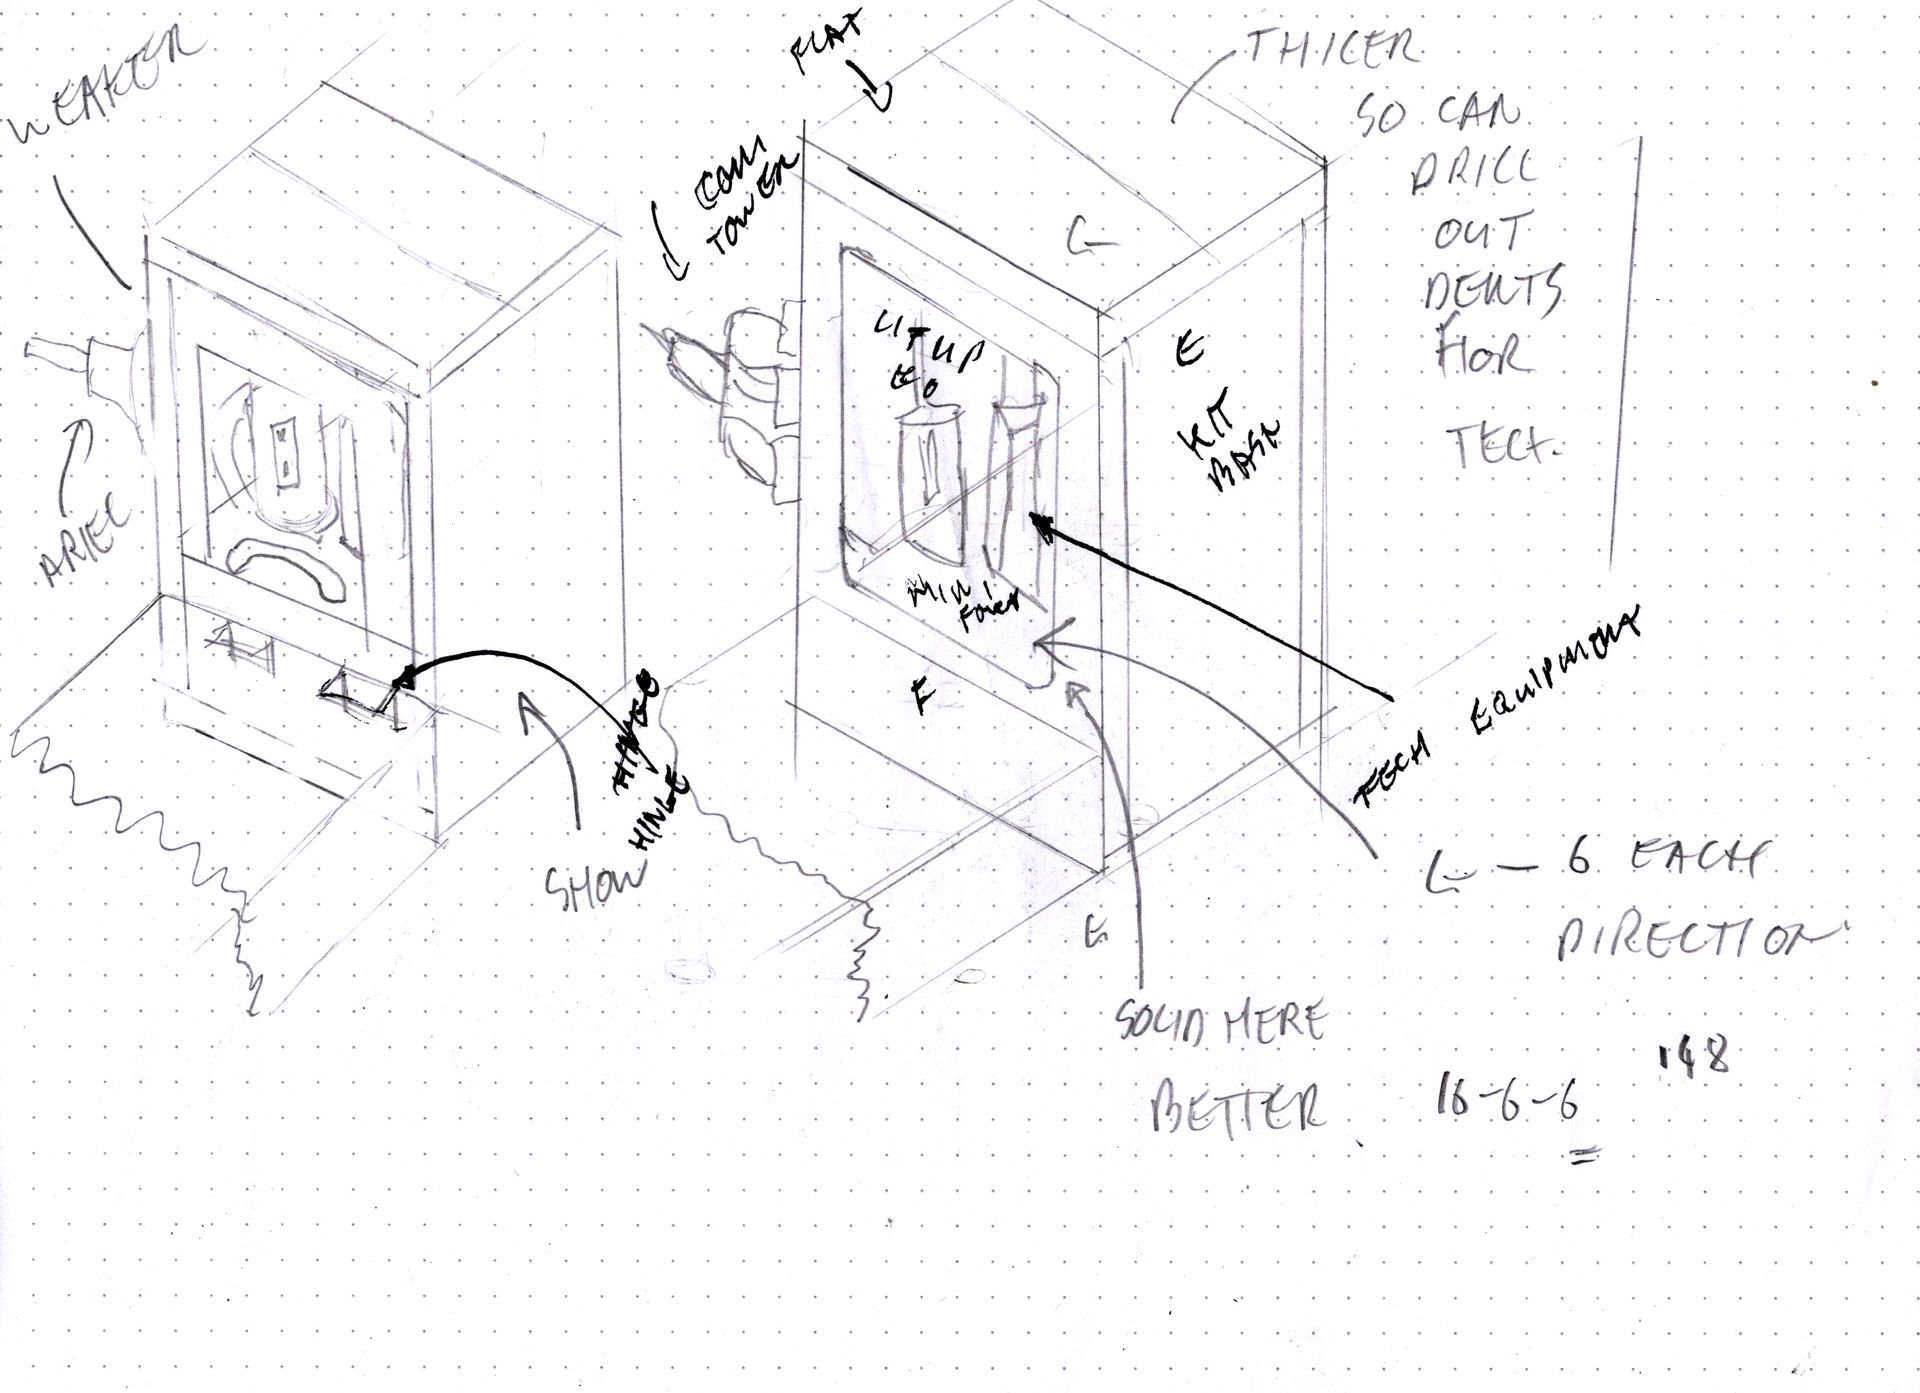 WEAKER
ARIEL
FLAT
COM
TOWER
THICER
SO CAN
DRILL
OUT
DENTS
FOR
TECH.
LIT UP
E
KIT
BASH
MINI
F
HINGE
SHOW
TECH EQUIPMENT
6 EACH
DIRECTION
E
SOLID HERE
BETTER
16-6-6
=